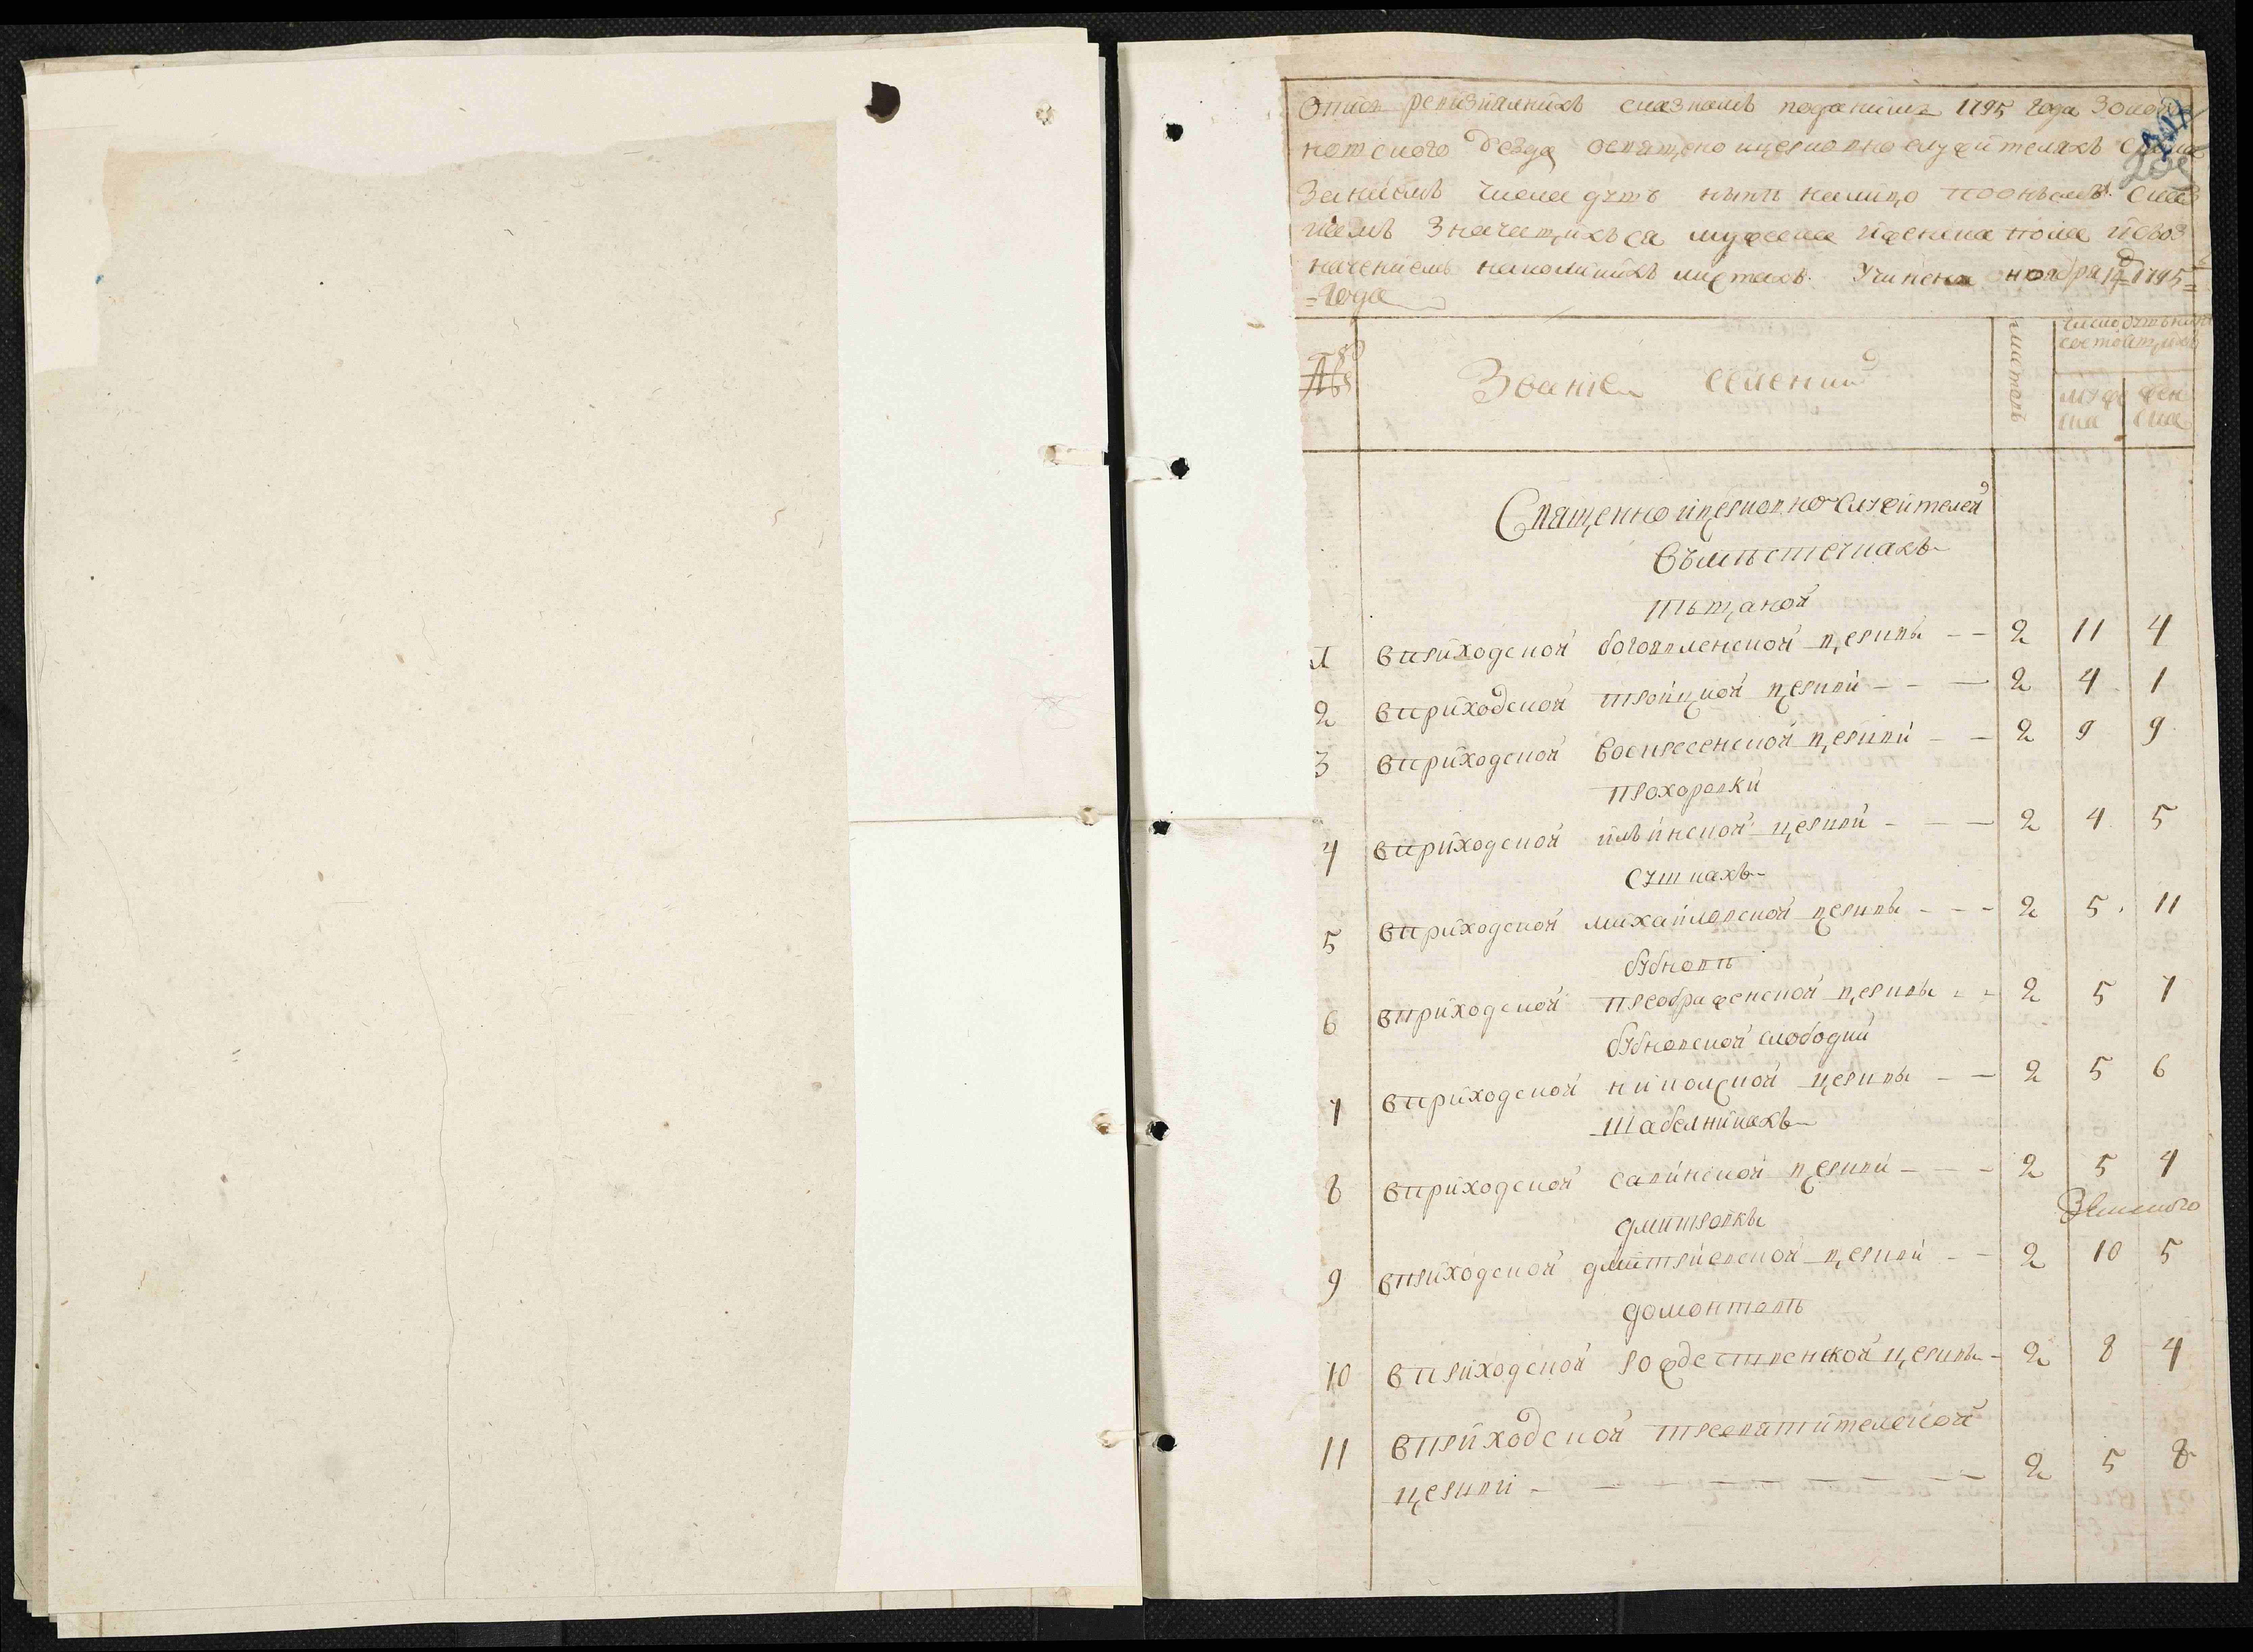 Опись ревизиалнихъ сказкамъ поданимъ 1795 года Золото
ношского уезда освященно и церковно служителахъ
Занаемъ числа душъ налицо по онъемъ сказ
камъ значащихъся мужеска и женска пола и своз
начениемъ наколикихъ листахъ. Учинена октября 1795
года
№
Звание селений
число душъ
состоящихъ
муже
ска
жен
ска
Священно и церковно служителей
въ местечкахъ
Пѣщаной
1 в приходской богоявленской церквы 2 11 4
2 в приходской тройцкой церкви 2 4 1
3 в приходской воскресенской церкви 2 9 9
Прохоровки
4 в приходской ильинской церкви 2 4 5
Сушкахъ
5 в приходской михайловской церквы 2 5 11
бубновѣ
6 в приходской преображенской церквы 2 5 7
бубновской слободки
7 в приходской николской церквы 2 5 6
Шабелникахъ
8 в приходской савинской церкви 2 5 4
дмитровкы
9 в приходской дмитриевской церкви 2 10 5
домонтовѣ
10 в приходской рождественской церквы 2 8 4
11 в приходской тресвятителской
церкви 2 5 8